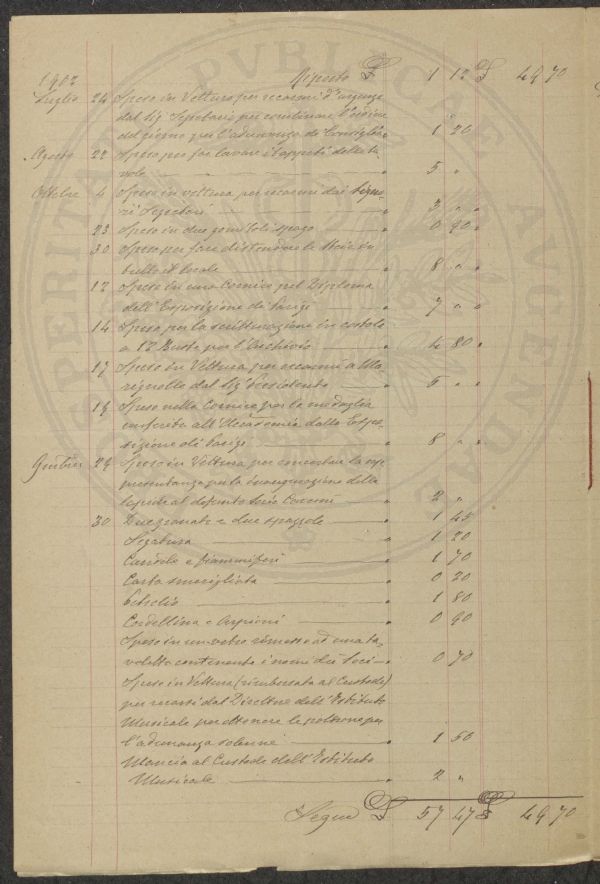 1902 Riporto £ 1 12 £ 49 70
Luglio 24 Spese in Vettura per recarmi d'urgenza
dal Sig. Segretario per combinare l'ordine
del giorno per l'adunanza di Consiglio „ 1 20
Agosto 22 Spese per far lavare i tappeti della ta
vole „ 5 „
Ottobre 4 Spese in vettura per recarmi dai Signo
ri „ 3 „ „
23 Spese in due gomitoli spago „ 0 90 „
30 Spese per fare distendere le
tutto il locale „ 8 „ „
12 Spese in una Cornice pel Diploma
dell'Esposizione di Parigi „ 7 „ „
14 Spese per la scritturazione in costola
a 12 Buste per l'Archivio „ 4 80 „
17 Spese in Vettura per recarmi a Ma
rignolle dal Sig. Presidente „ 5 „ „
19 Spese nella Cornice per la medaglia
conferita all'Accademia dalla Espo
sizione di Parigi „ 8 „ „
29 Spese in Vettura per
presentanza per la inaugurazione della
lapide al defunto Socio „ 2 „
30 Due granate e due spazzole „ 1 45
Segatura „ 1 20
Candele e fiammiferi „ 1 70
Carta smerigliata „ 0 20
Petrolio „ 1 80
Cordellina e Arpioni „ 0 90
Spese in un vetro rimesso ad una ta
voletta contenente i nomi dei Soci „ 0 70
Spese in Vettura (rimborsata al Custode)
per recarsi dal Direttore dell'Istituto
Musicale per ottenere le poltrone per
l'adunanza solenne „ 1 50
Mancia al Custode dell'Istituto
Musicale „ 2 „
Segue £ 57 47 £ 49 70
PUBLICAE
PROSPERITATI
AUGENDAE